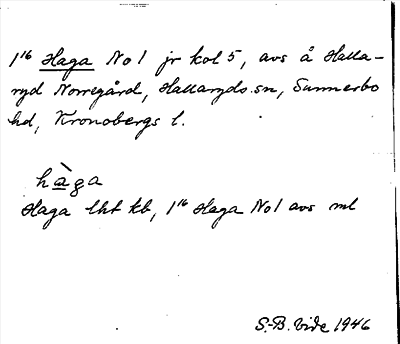 1¹⁶ Haga No 1 jr kol 5, avs å Halla-
ryd Norregård, Hallaryds sn, Sunnerbo
hd, Kronobergs l.
hàga
Haga lht kb, 1¹⁶ Haga No 1 avs ml
S.-B. Vide 1946